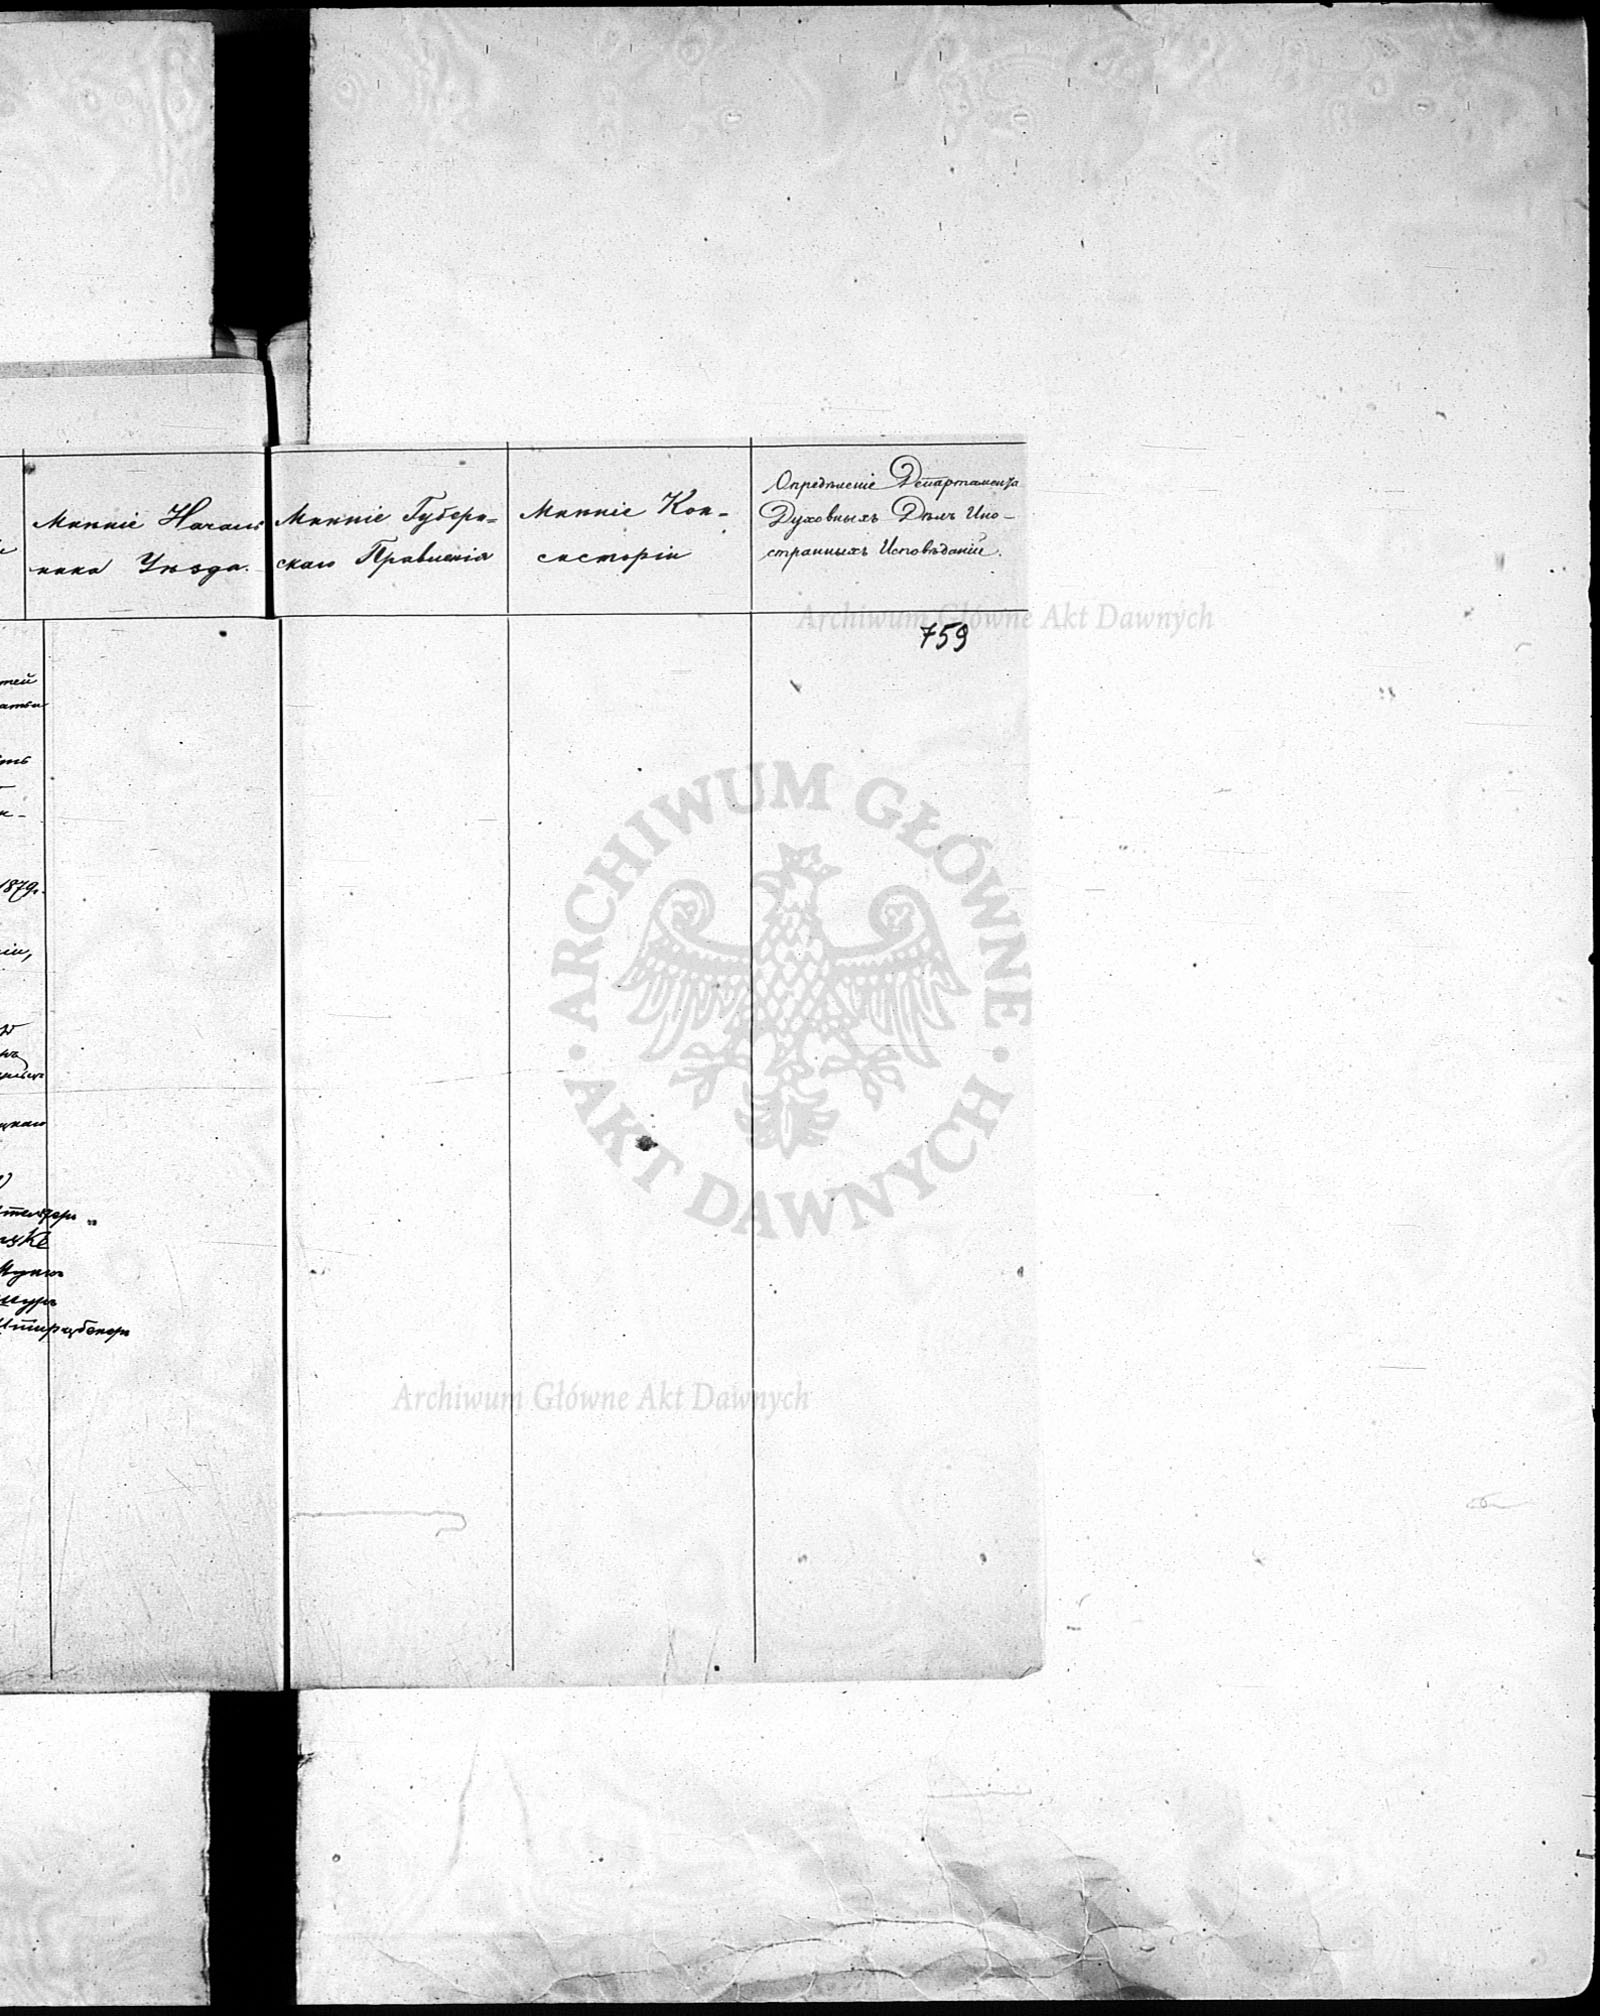 Мнѣніе Началь
ника Уѣзда.
Мнѣніе Губерн=
скаго Правленія
Мнѣніе Кон-
систоріи
Опредѣленіе Департамента
Духовныхъ Дѣлъ Ино-
странныхъ Исповѣданій.
759
тей
ть
1879.
ніи,
цкаго
nske
Archiwum Główne Akt Dawnych
ARCHIWUM GŁÓWNE
AKT DAWNYCH
Archiwum Główne Akt Dawnych